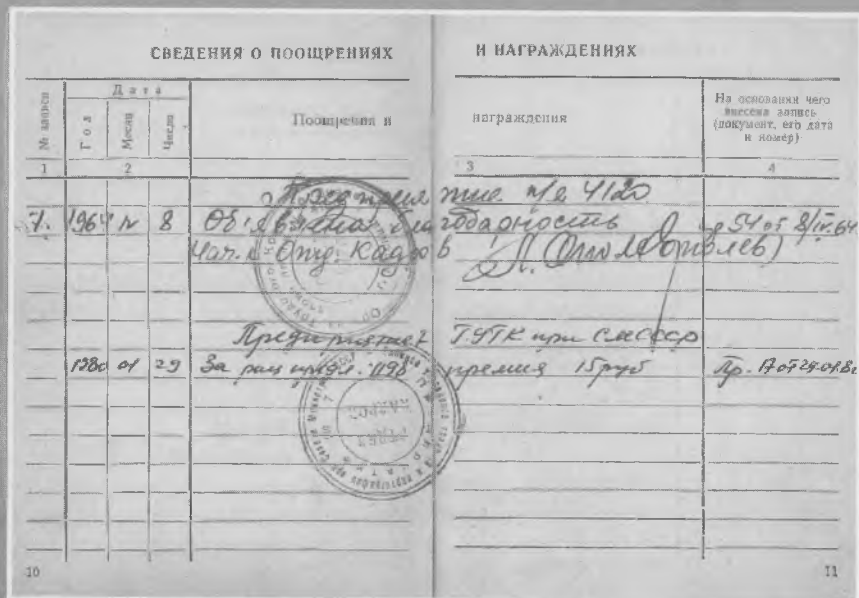 СВЕДЕНИЯ О ПООЩРЕНИЯХ И НАГРАЖДЕНИЯХ
№ записи
Дата
Год
Месяц
Число
Поощрения и награждения
На основании чего внесена запись (документ, его дата и номер)
1 2 3 4
Предприятие п/я 4120
1. 1964 IV 8 Объявлена благодарность 54 от 8/IV.64
Нач-к Отд. Кадров
Предприятие ГУГК при СМ СССР
1980 01 29 За рац. предл. премия 15 руб Пр. 17 от 29.01.80
10 11